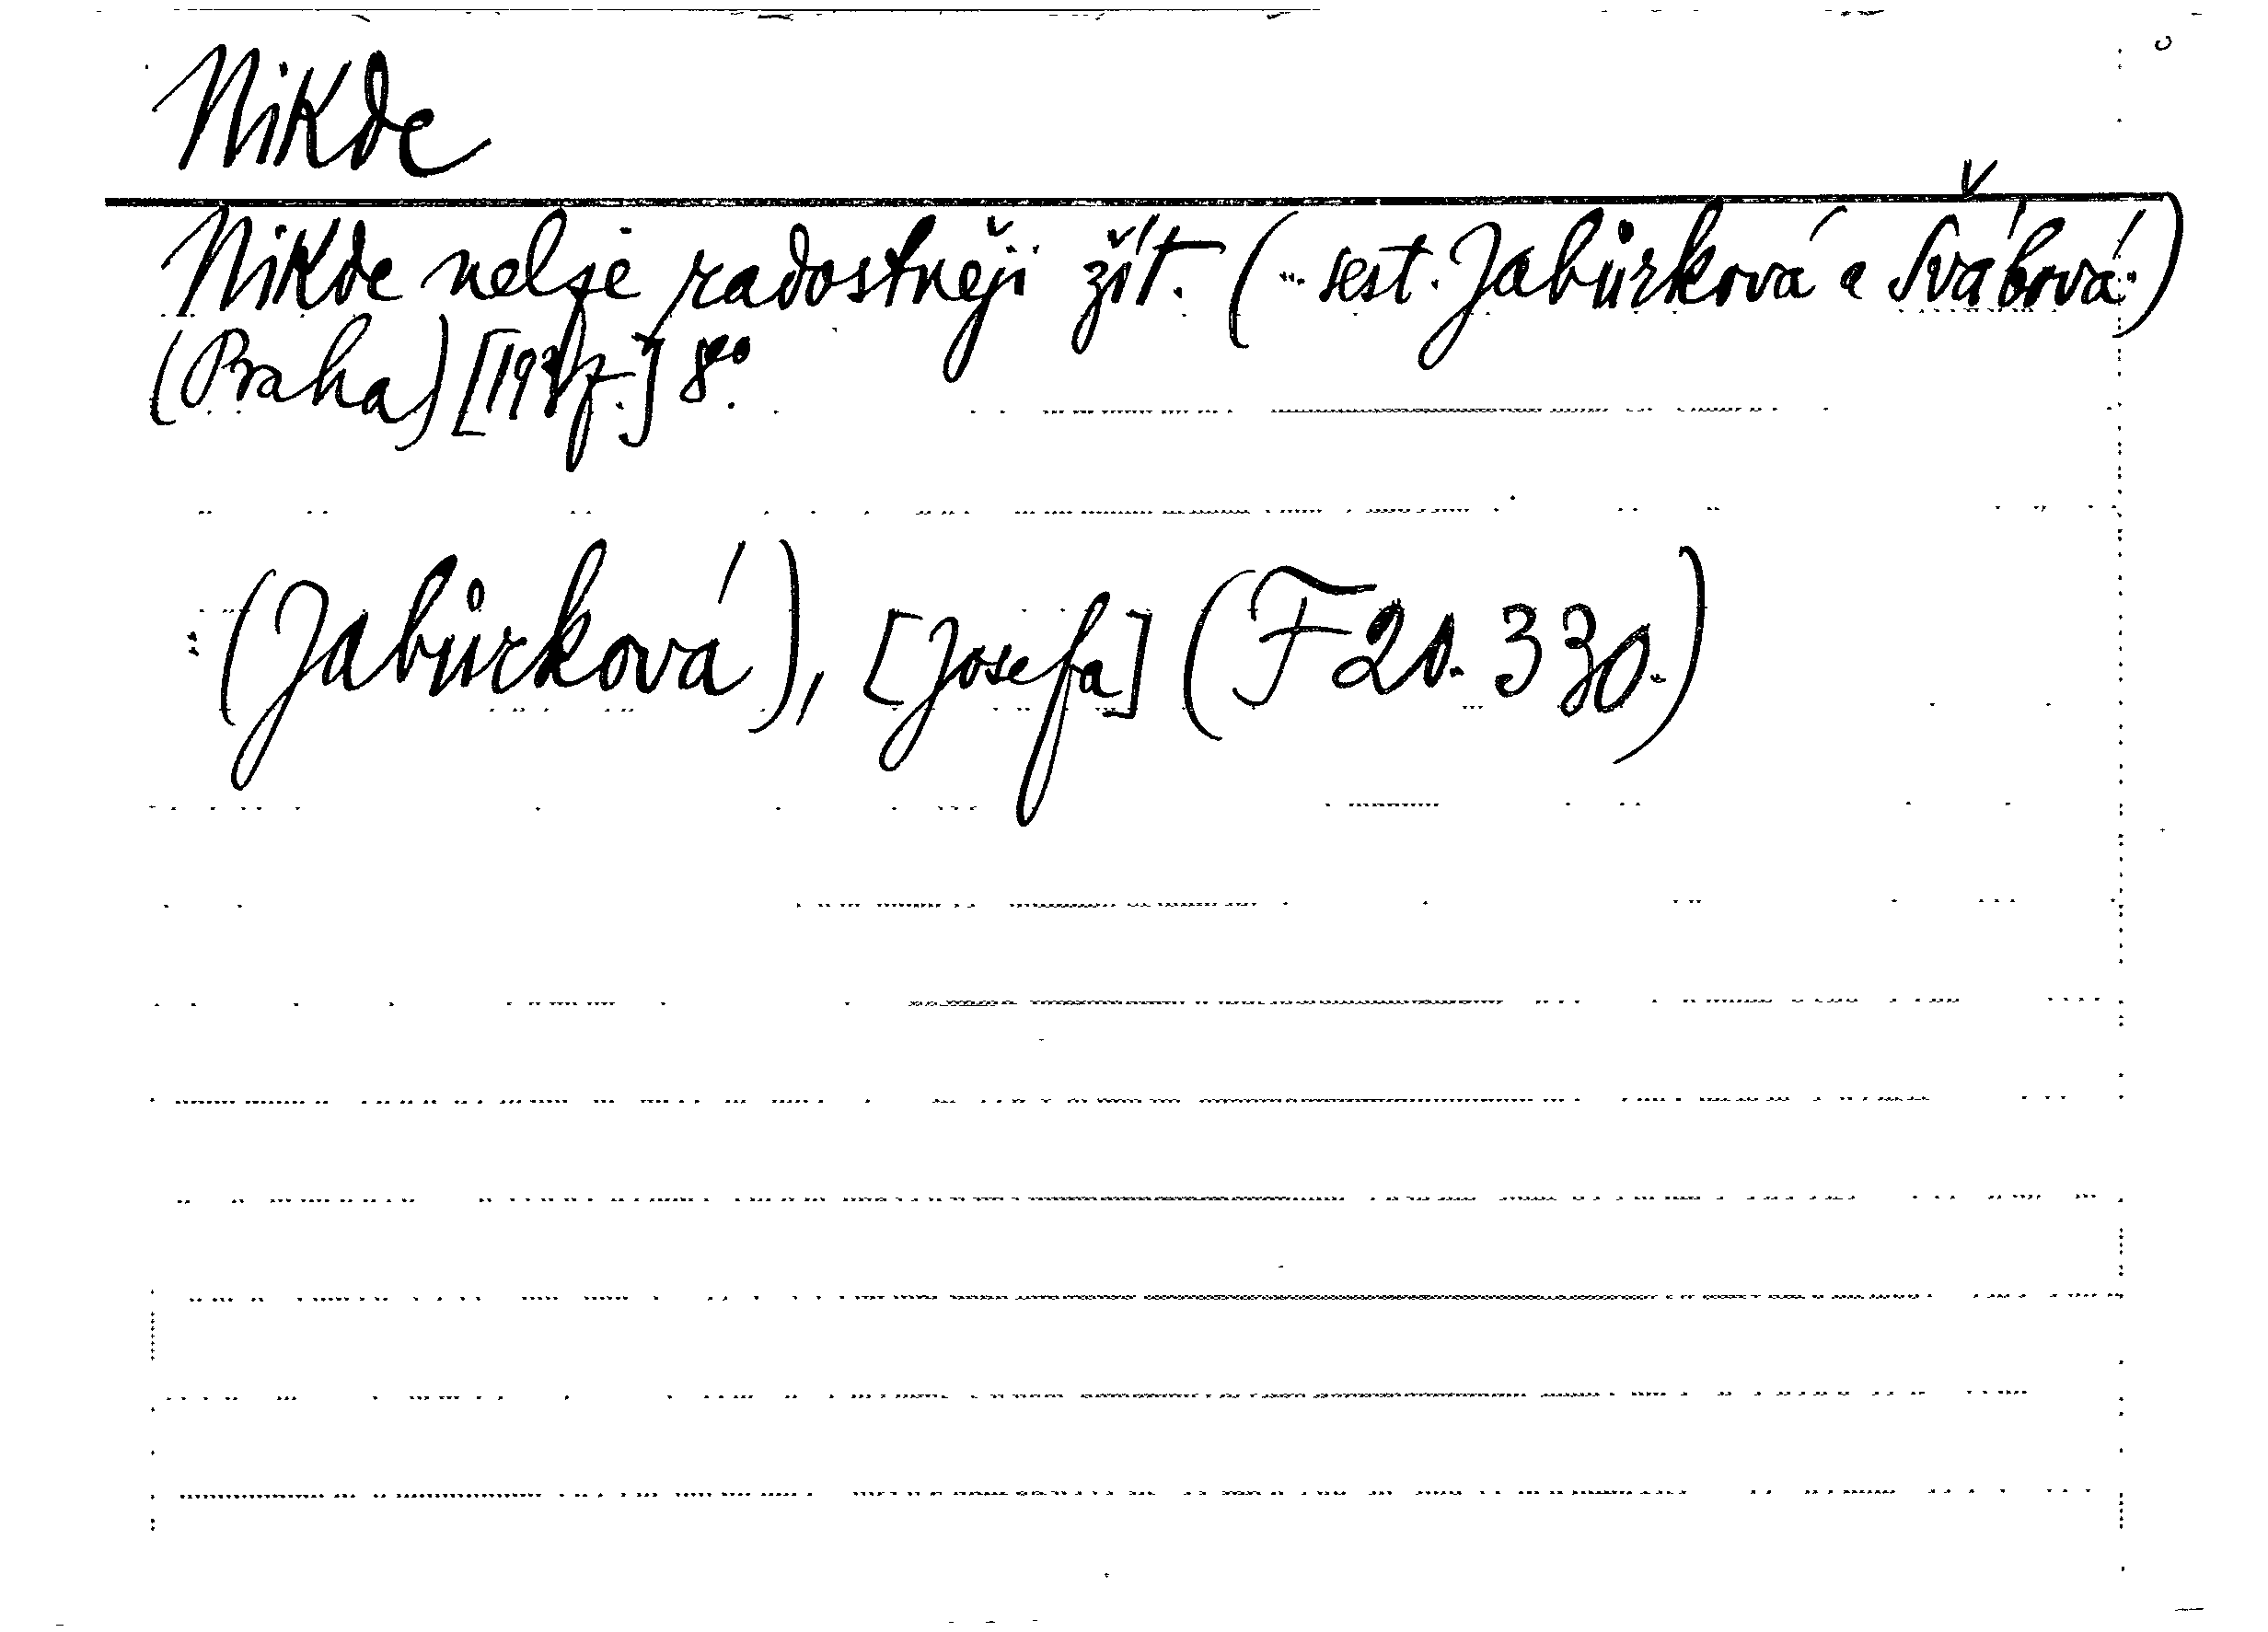 Nikde
Nikde nelze radostněji žít. (... sest. Jabůrková a Švábová.)
(Praha) [1937.] 8°.
(Jabůrková), [Josefa] (F 20.330.)